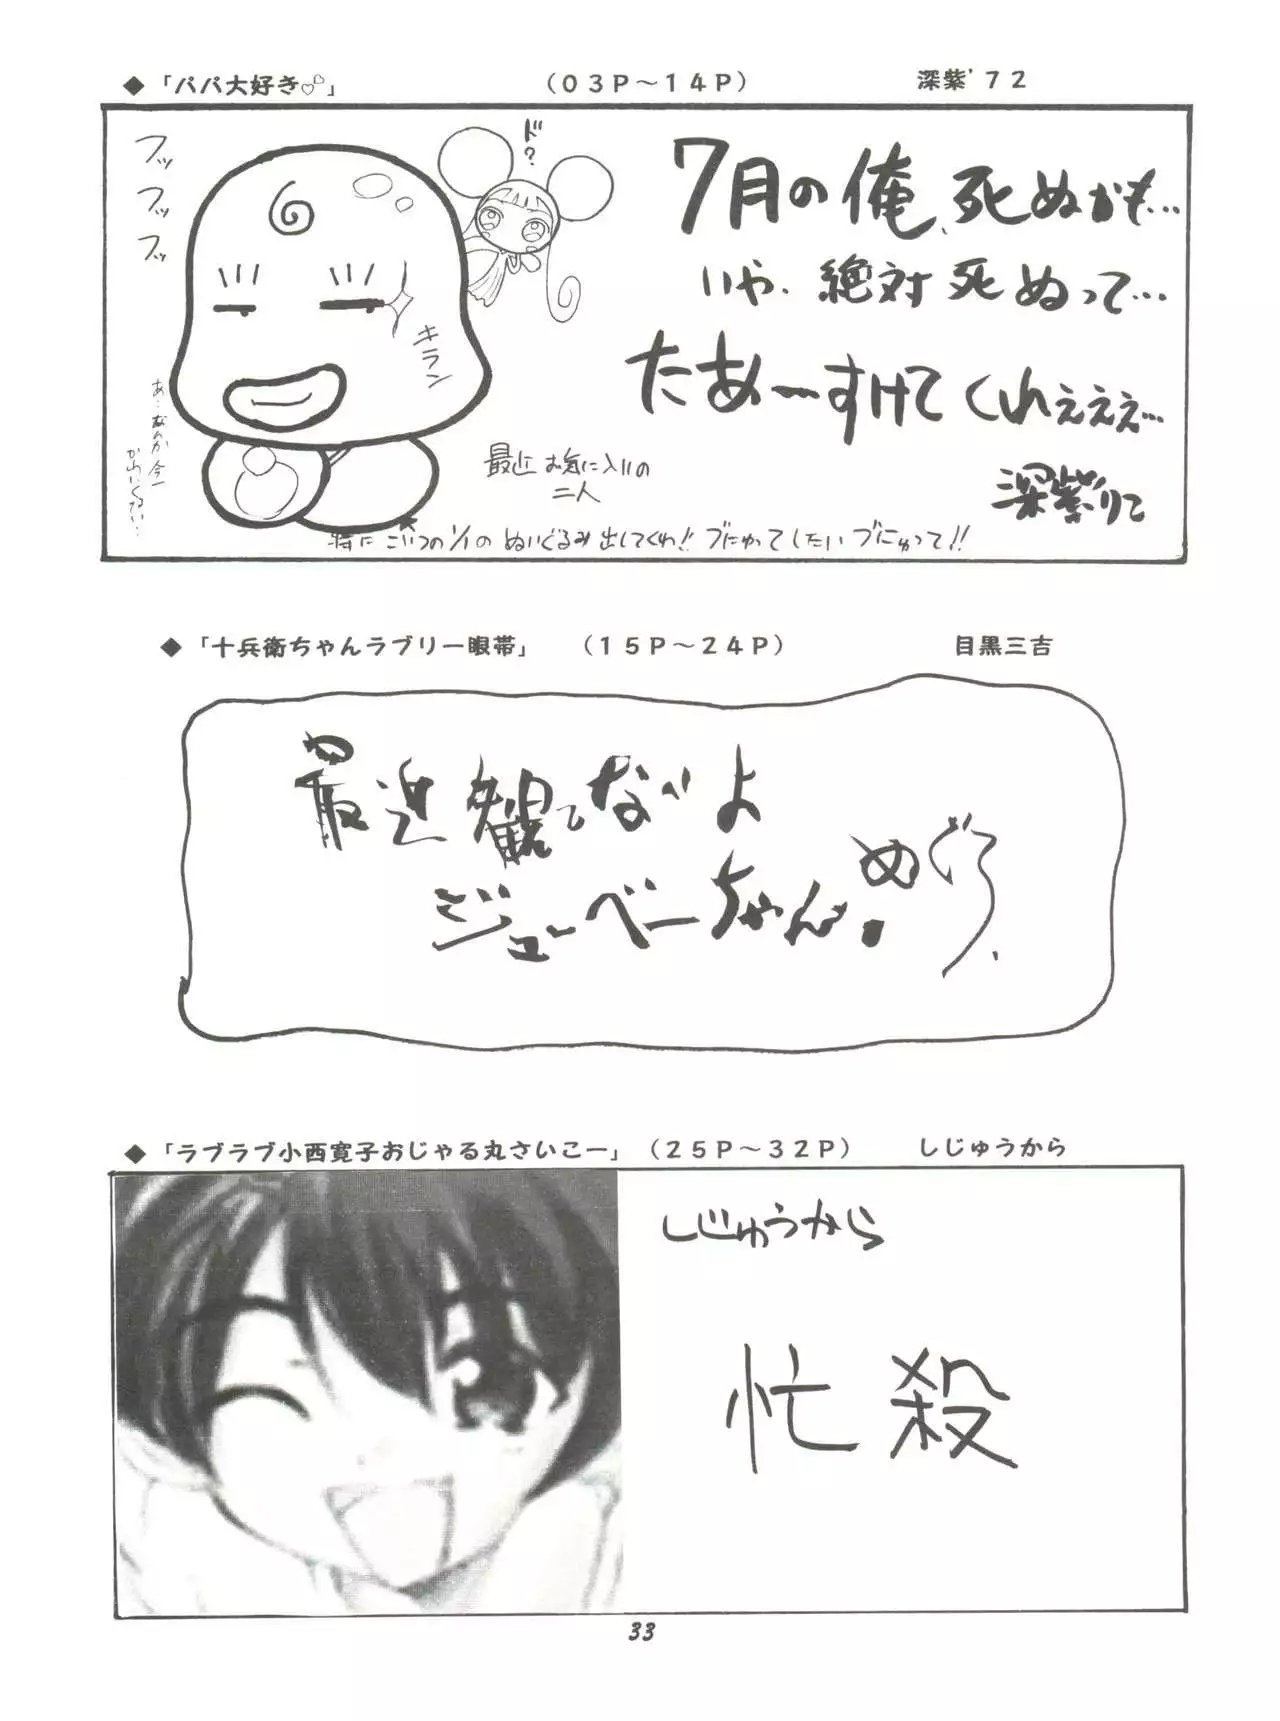 ◆「パパ大好き♡」 (03P～14P) 深紫'72
フッ
フッ
フッ
ド?
キラン
あ…なんか今一
かわいくない…
最近お気に入りの
二人
7月の俺、死ぬかも…
いや、絶対死ぬって…
たあーすけてくれぇぇぇ…
深紫りて
特にこいつの1/1のぬいぐるみ出してくれ!!ブにゅってしたいブにゅって!!
◆「十兵衛ちゃんラブリー眼帯」 (15P～24P) 目黒三吉
最近観てないよ
ジューベーちゃん。
めぐろ
◆「ラブラブ小西寛子おじゃる丸さいこー」 (25P～32P) しじゅうから
しじゅうから
忙殺
33